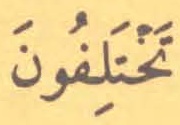 تَخْتَلِفُونَ